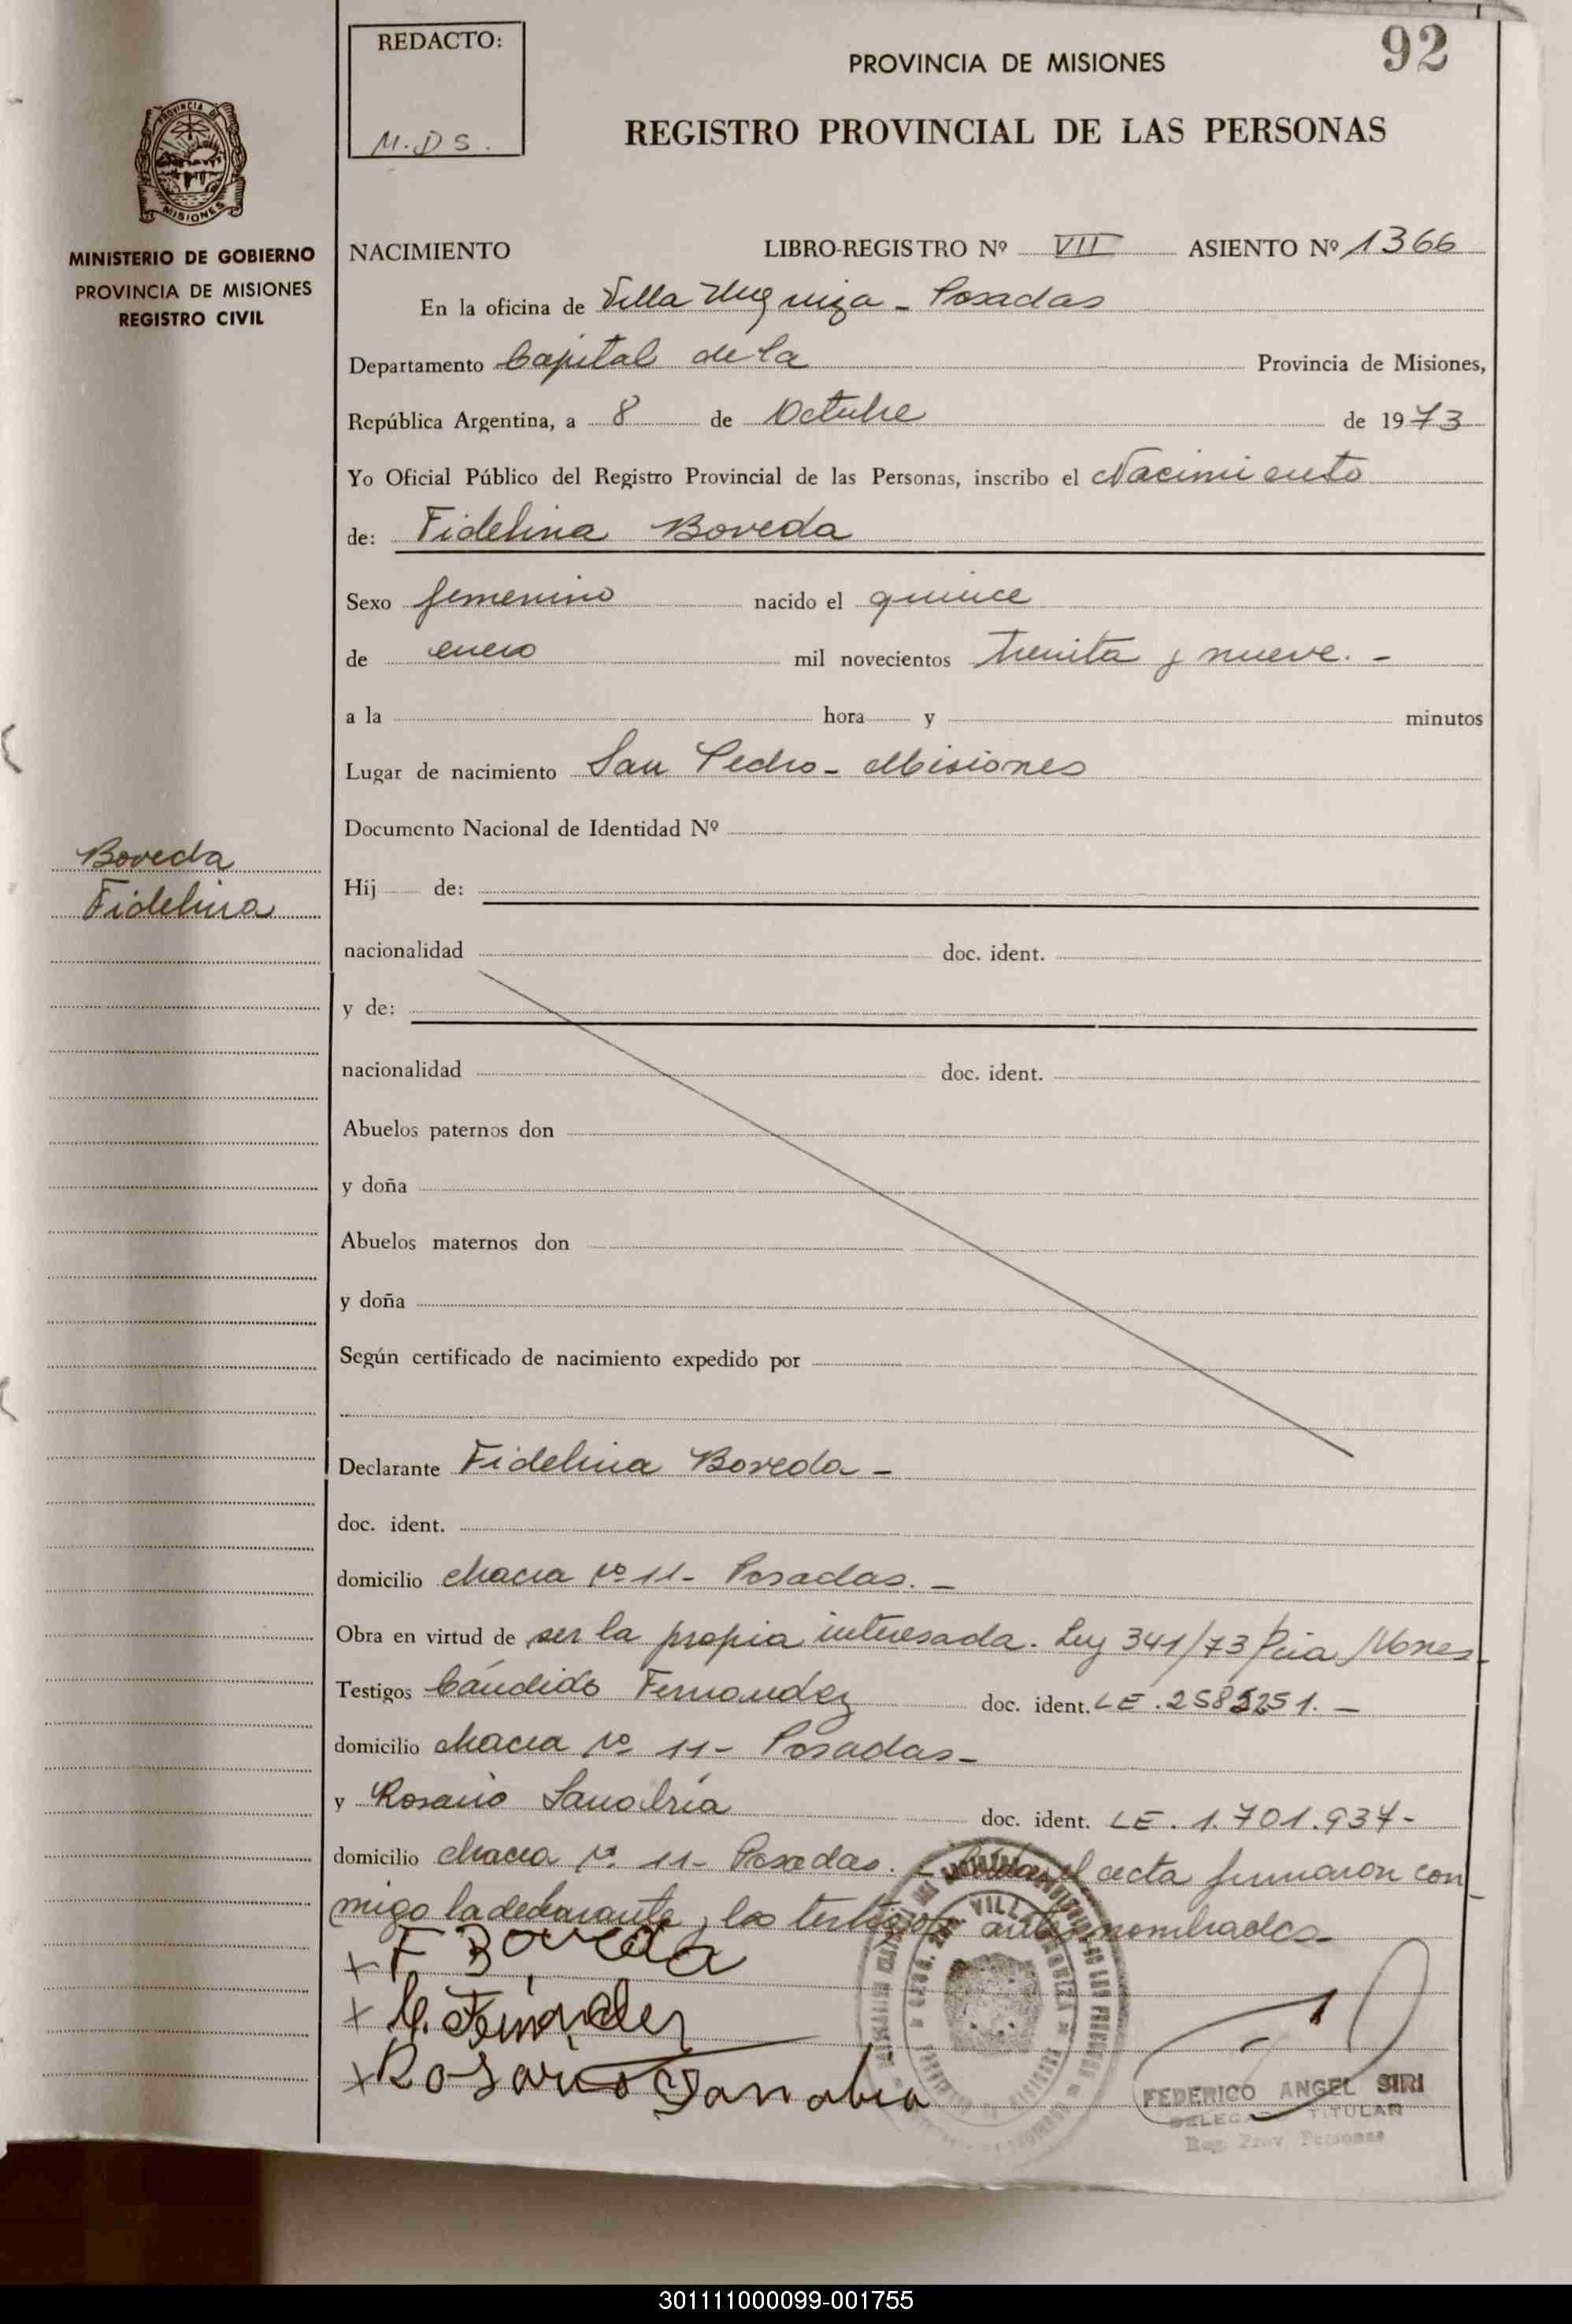 92
REDACTO:
M.D S.
PROVINCIA DE MISIONES
REGISTRO PROVINCIAL DE LAS PERSONAS
MISIONES
MINISTERIO DE GOBIERNO
PROVINCIA DE MISIONES
REGISTRO CIVIL
NACIMIENTO LIBRO-REGISTRO Nº VII ASIENTO Nº 1366
En la oficina de Villa Urquiza - Posadas
Departamento Capital de la Provincia de Misiones,
República Argentina, a 8 de Octubre de 1973
Yo Oficial Público del Registro Provincial de las Personas, inscribo el Nacimiento
de: Fidelina Boveda
Sexo femenino nacido el quince
de enero mil novecientos treinta y nueve. -
a la hora y minutos
Lugar de nacimiento San Pedro - Misiones
Documento Nacional de Identidad Nº
Boveda
Fidelina
Hij de:
nacionalidad doc. ident.
y de:
nacionalidad doc. ident.
Abuelos paternos don
y doña
Abuelos maternos don
y doña
Según certificado de nacimiento expedido por
Declarante Fidelina Boveda -
doc. ident.
domicilio chacra nº 11 - Posadas. -
Obra en virtud de ser la propia interesada. Ley 341/73
Testigos Cándido Fernandez doc. ident. LE.
domicilio chacra nº 11 - Posadas -
y Rosario Sanabria doc. ident. LE. 1.701.937 -
domicilio chacra nº 11 - Posadas. - acta firmaron con
migo la declarante y los testigos antes nombrados -
x F Boveda
x C. Fernandez
x Rosario Sanabria
FEDERICO ANGEL SIRI
DELEGADO TITULAR
Reg. Prov Personas
301111000099-001755